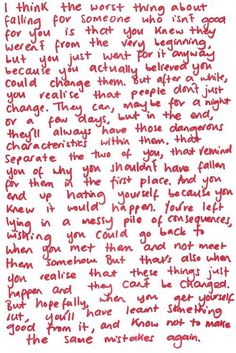 I think the worst thing about
falling for someone who isn't good
for you is that you knew they
weren't from the very beginning,
but you just went for it anyway
because you actually believed you
could change them. But after a while,
you realise that people don't just
change. They can, maybe for a night
or a few days, but in the end,
they'll always have those dangerous
characteristics within them, that
separate the two of you, that remind
you of why you shouldn't have fallen
for them in the first place. And you
end up hating yourself, because you
knew it would happen. You're left
lying in a messy pile of consequences,
wishing you could go back to
when you met them and not meet
them somehow But thats also when
you realise that these things just
happen and they cant be changed.
But hopefully, when you get yourself
out, you'll have learnt something
good from it, and know not to make
the same mistakes again.